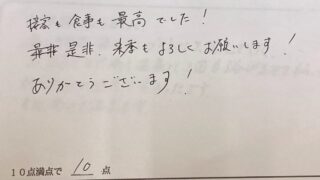 接客も食事も最高でした!
是非 来季もよろしくお願いします!
ありがとうございます!
10点満点で 10 点